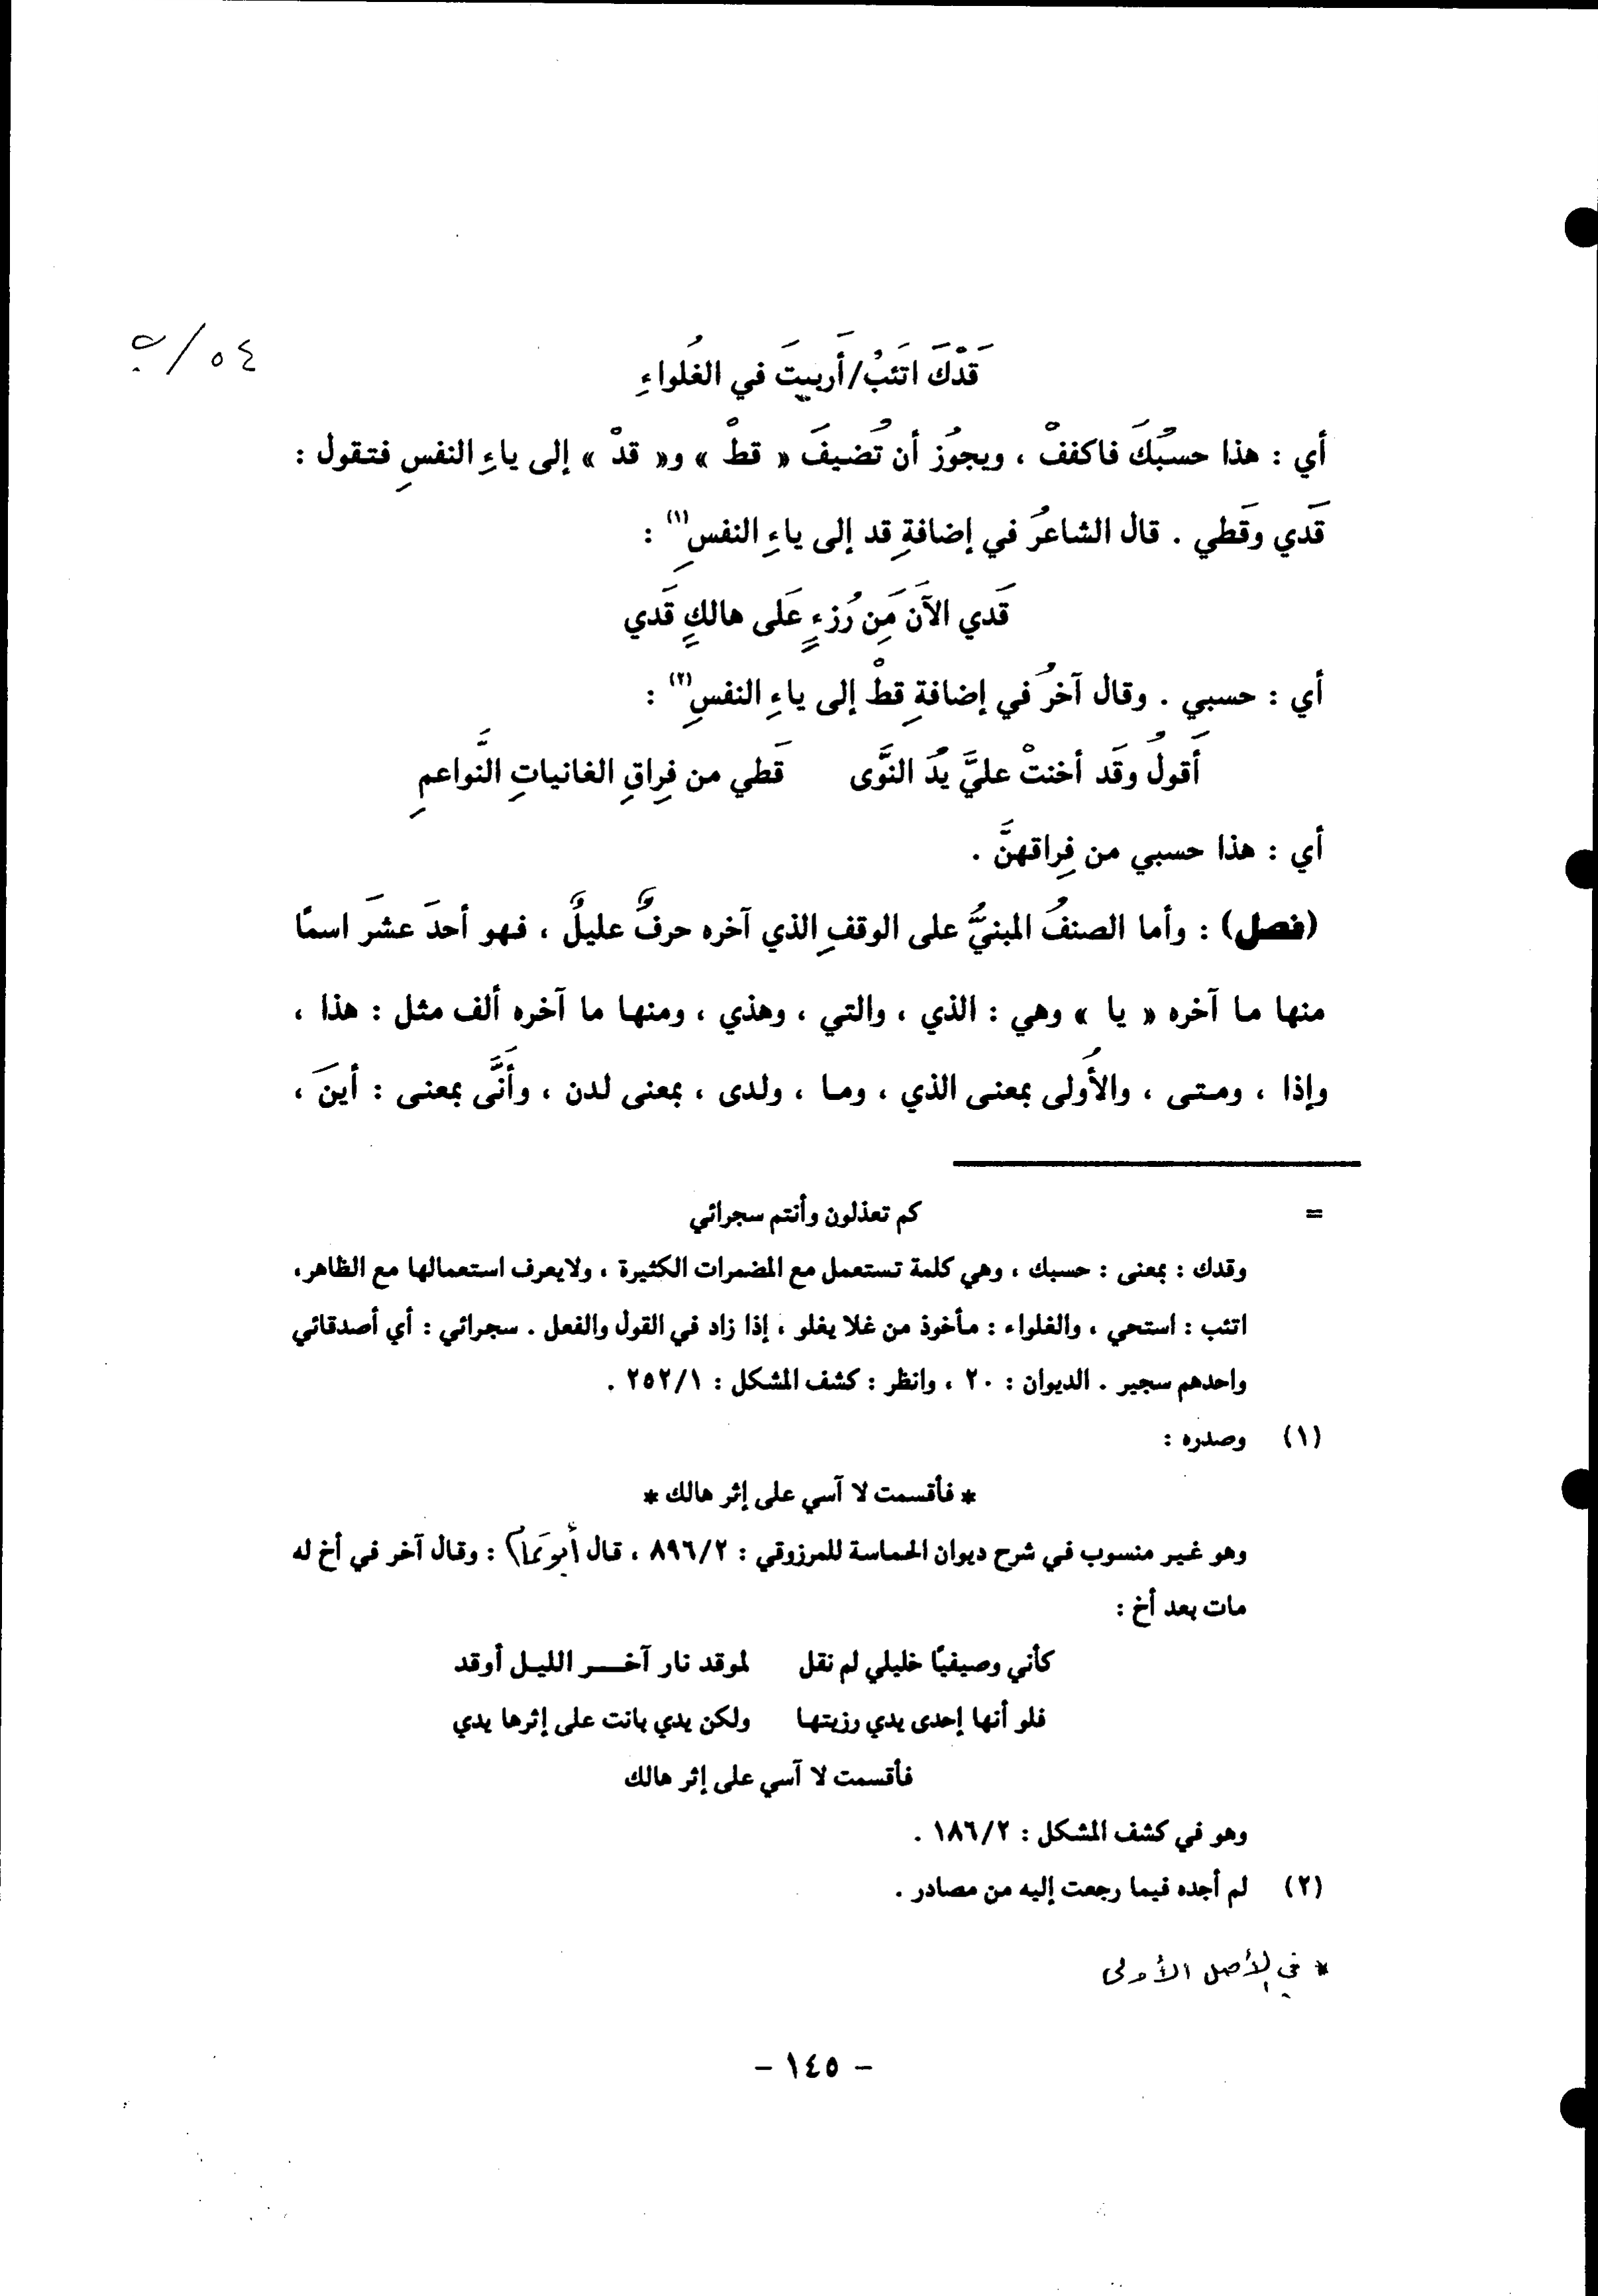 ٥٤/ب
قَدْكَ اتَئبْ/أَربيتَ في الغُلواءِ
أي : هذا حسبُكَ فاكففْ ، ويجوُز أن تُضيفَ « قطْ » و« قدْ » إلى ياءِ النفسِ فتقول :
قَدي وقَطي . قال الشاعرُ في إضافةِ قد إلى ياءِ النفسِ(١) :
قَدي الآنَ مَِن رُزءٍ عَلى هالكٍ قَدي
أي : حسبي . وقال آخرُ في إضافةِ قطْ إلى ياءِ النفسِ(٢) :
أَقولُ وقَد أخنتْ عليَّ يدُ النَّوى قَطي من فِراقِ الغانياتِ النَّواعمِ
أي : هذا حسبي من فِراقهنَّ .
(فصل) : وأما الصنفُ المبنيُّ على الوقفِ الذي آخره حرفٌ عليلٌ ، فهو أحدَ عشرَ اسمًا
منها ما آخره « يا » وهي : الذي ، والتي ، وهذي ، ومنها ما آخره ألف مثل : هذا ،
وإذا ، ومتى ، والأُولى بمعنى الذي ، وما ، ولدى ، بمعنى لدن ، وأَنَّى بمعنى : أينَ ،
= كم تعذلون وأنتم سجرائي
وقدك : بمعنى : حسبك ، وهي كلمة تستعمل مع المضمرات الكثيرة ، ولايعرف استعمالها مع الظاهر،
اتئب : استحي ، والغلواء : مأخوذ من غلا يغلو ، إذا زاد في القول والفعل . سجرائي : أي أصدقائي
واحدهم سجير . الديوان : ٢٠ ، وانظر : كشف المشكل : ٢٥٢/١ .
(١) وصدره :
* فأقسمت لا آسي على إثر هالك *
وهو غير منسوب في شرح ديوان الحماسة للمرزوقي : ٨٩٦/٢ ، قال أبو تمام : وقال آخر في أخ له
مات بعد أخ :
كأني وصيفيًا خليلي لم نقل لموقد نار آخر الليل أوقد
فلو أنها إحدى يدي رزيتها ولكن يدي بانت على إثرها يدي
فأقسمت لا آسي على إثر هالك
وهو في كشف المشكل : ١٨٦/٢ .
(٢) لم أجده فيما رجعت إليه من مصادر .
* في الأصل الأولى
- ١٤٥ -